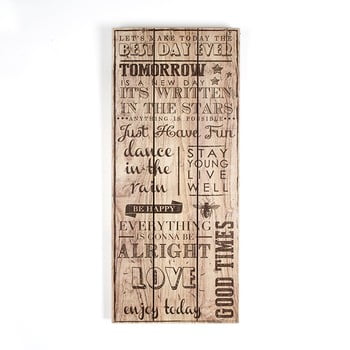 LET'S MAKE TODAY THE
BEST DAY EVER
TOMORROW
IS A NEW DAY
IT'S WRITTEN
IN THE STARS
ANYTHING IS POSSIBLE
Just Have Fun
dance
in the
rain
STAY
YOUNG
LIVE
WELL
BE HAPPY
EVERYTHING
IS GONNA BE
ALRIGHT
LOVE
enjoy today
GOOD TIMES